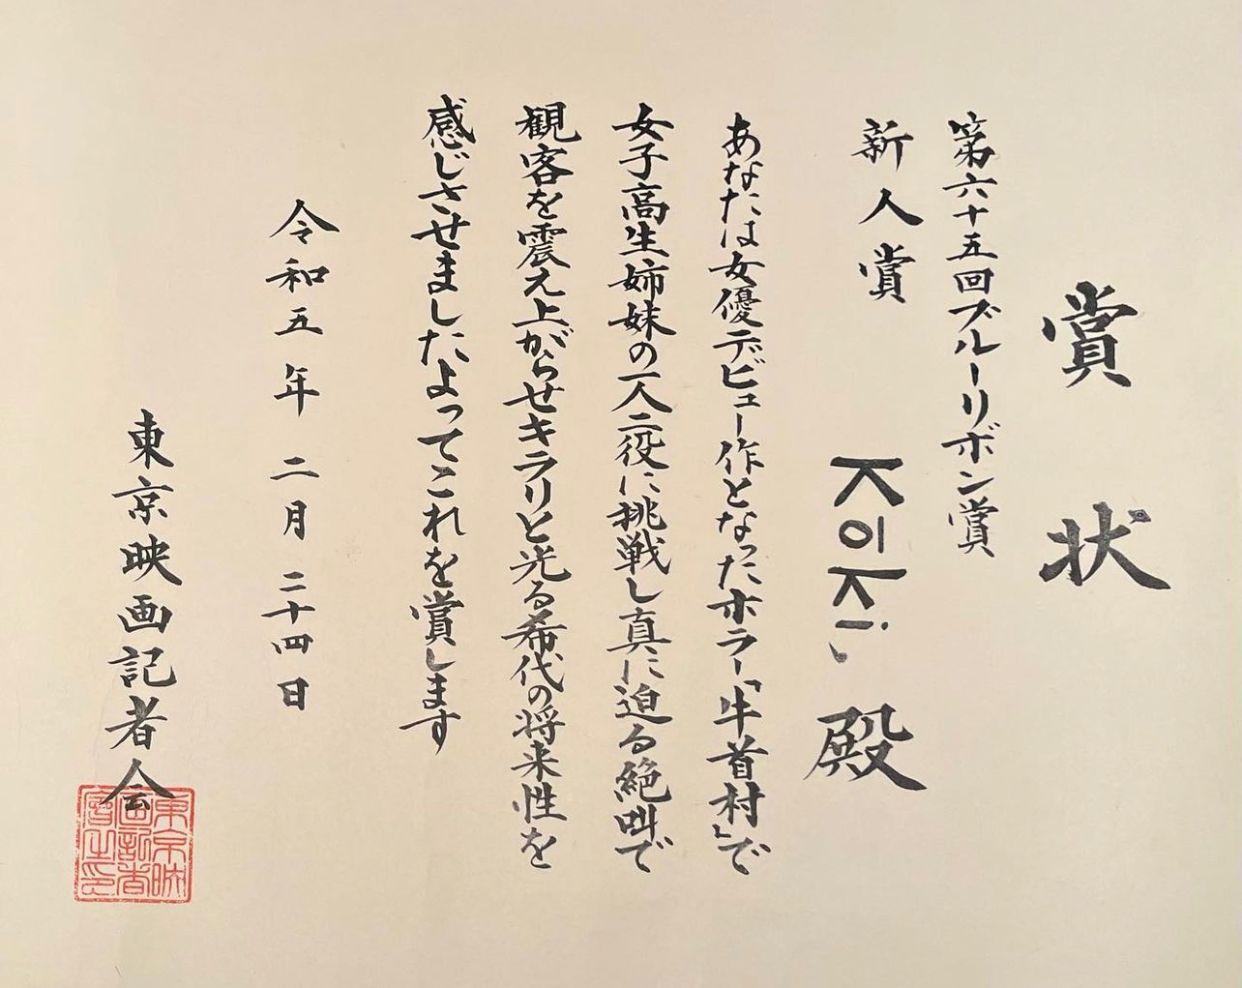 賞状
第六十五回ブルーリボン賞
新人賞 Kōki, 殿
あなたは女優デビュー作となったホラー「牛首村」で
女子高生姉妹の一人二役に挑戦し真に迫る絶叫で
観客を震え上がらせキラリと光る希代の将来性を
感じさせましたよってこれを賞します
令和五年二月二十四日
東京映画記者会
東京映画記者会之印